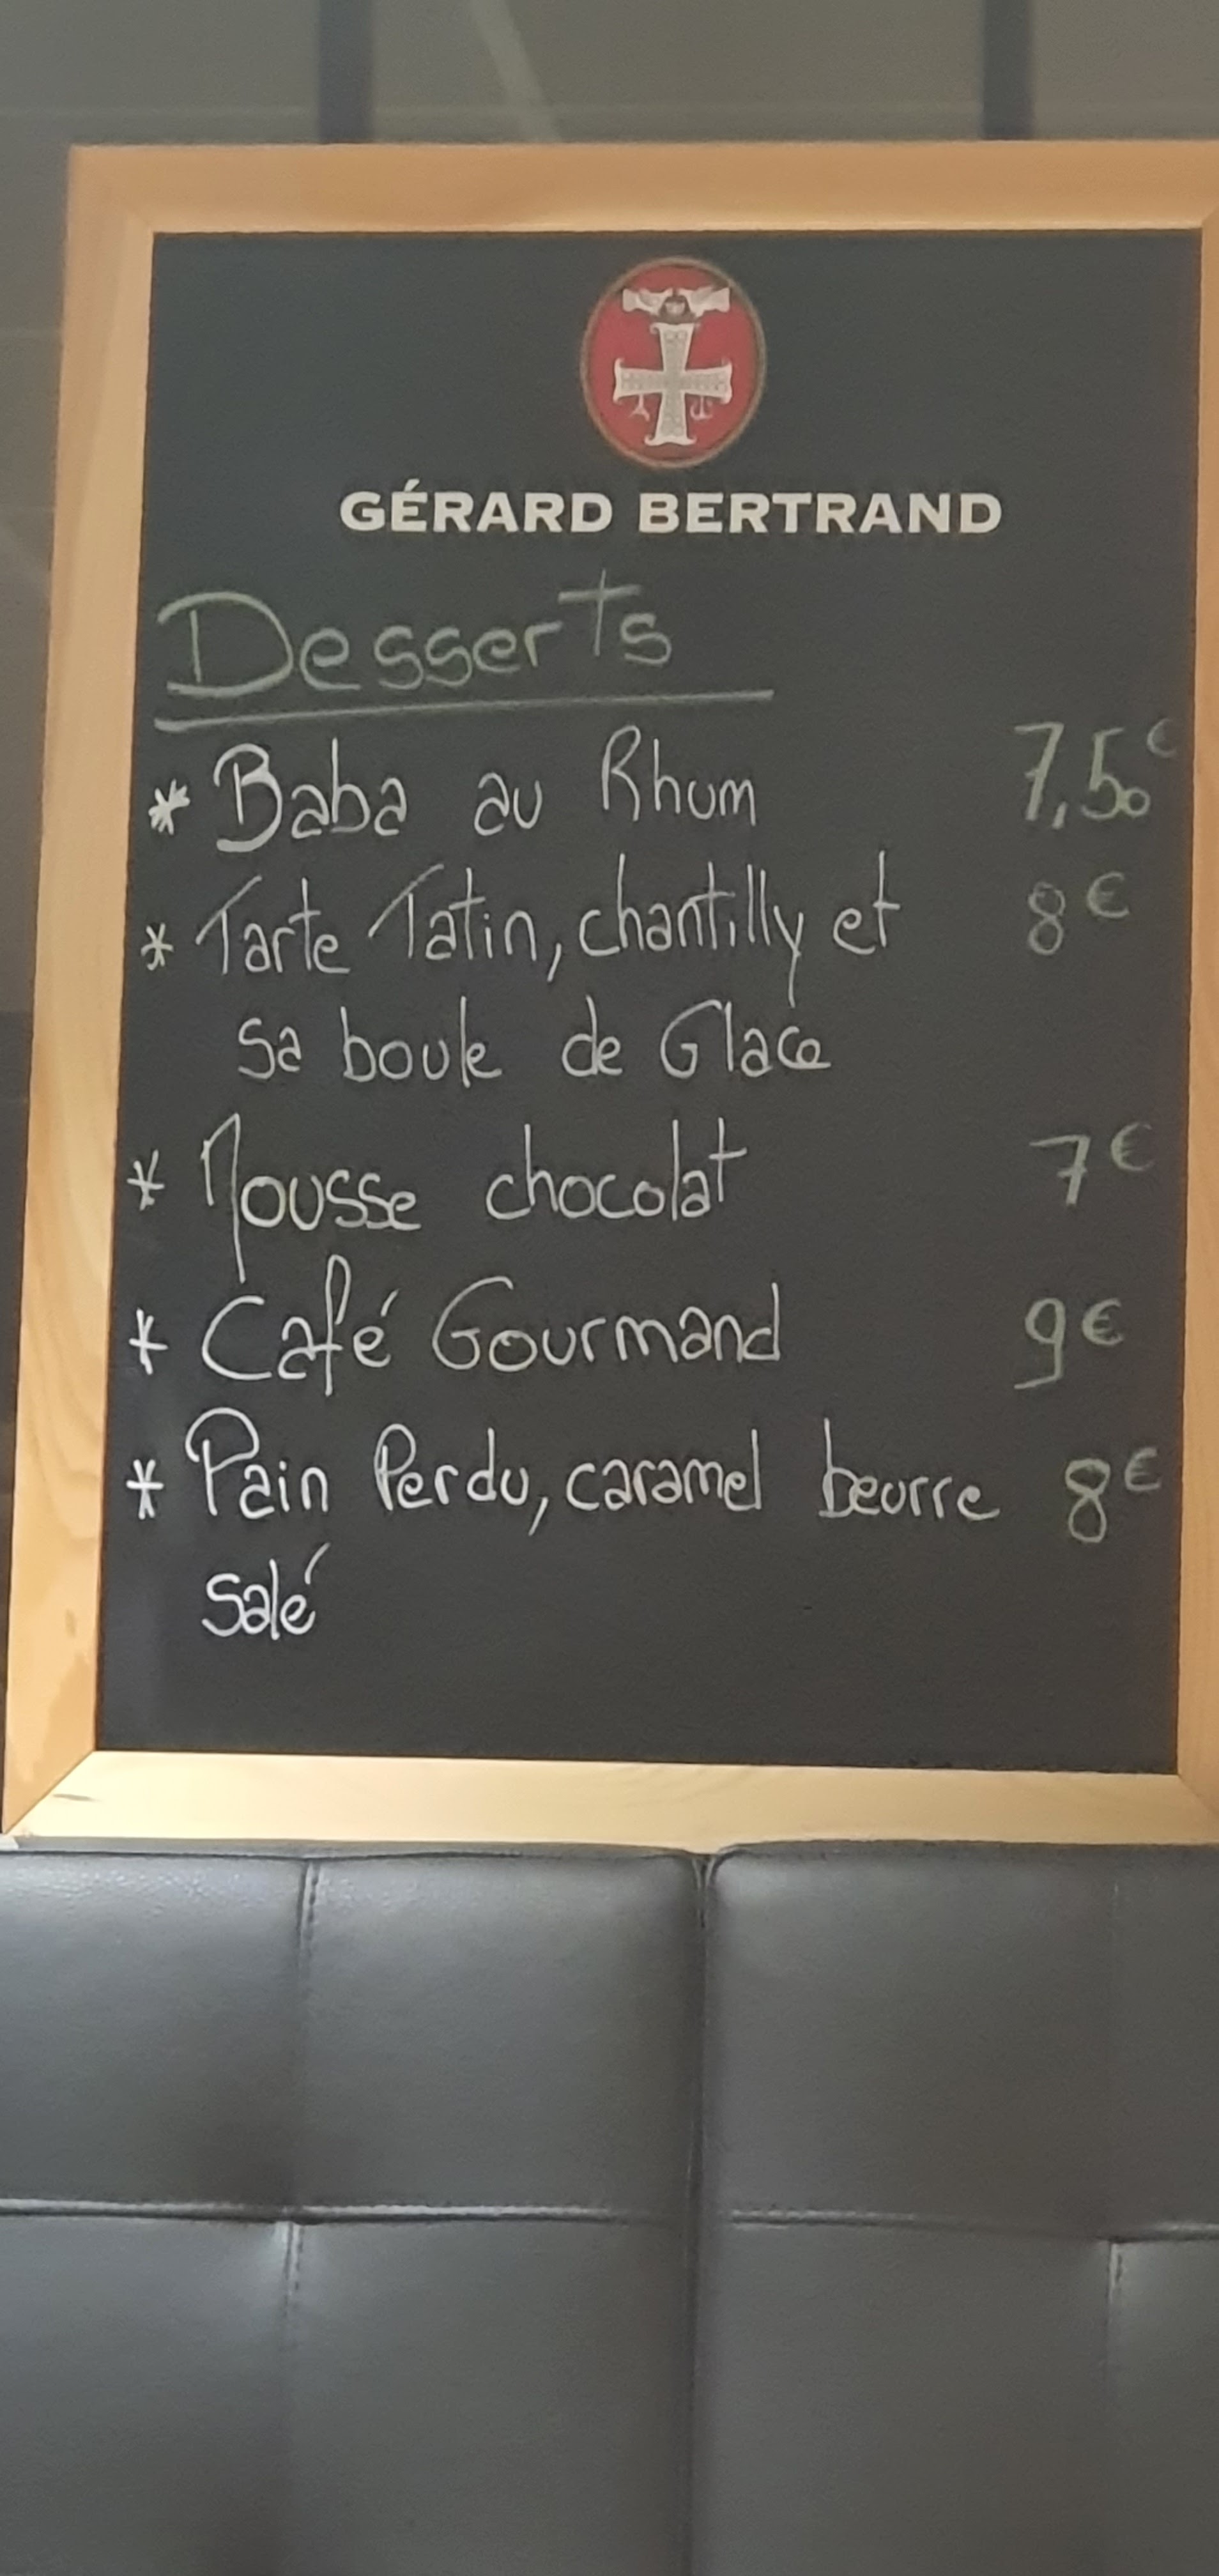 GÉRARD BERTRAND
Desserts
* Baba au Rhum 7,50€
* Tarte Tatin, chantilly et 8€
sa boule de Glace
* Mousse chocolat 7€
* Café Gourmand 9€
* Pain Perdu, caramel beurre 8€
salé